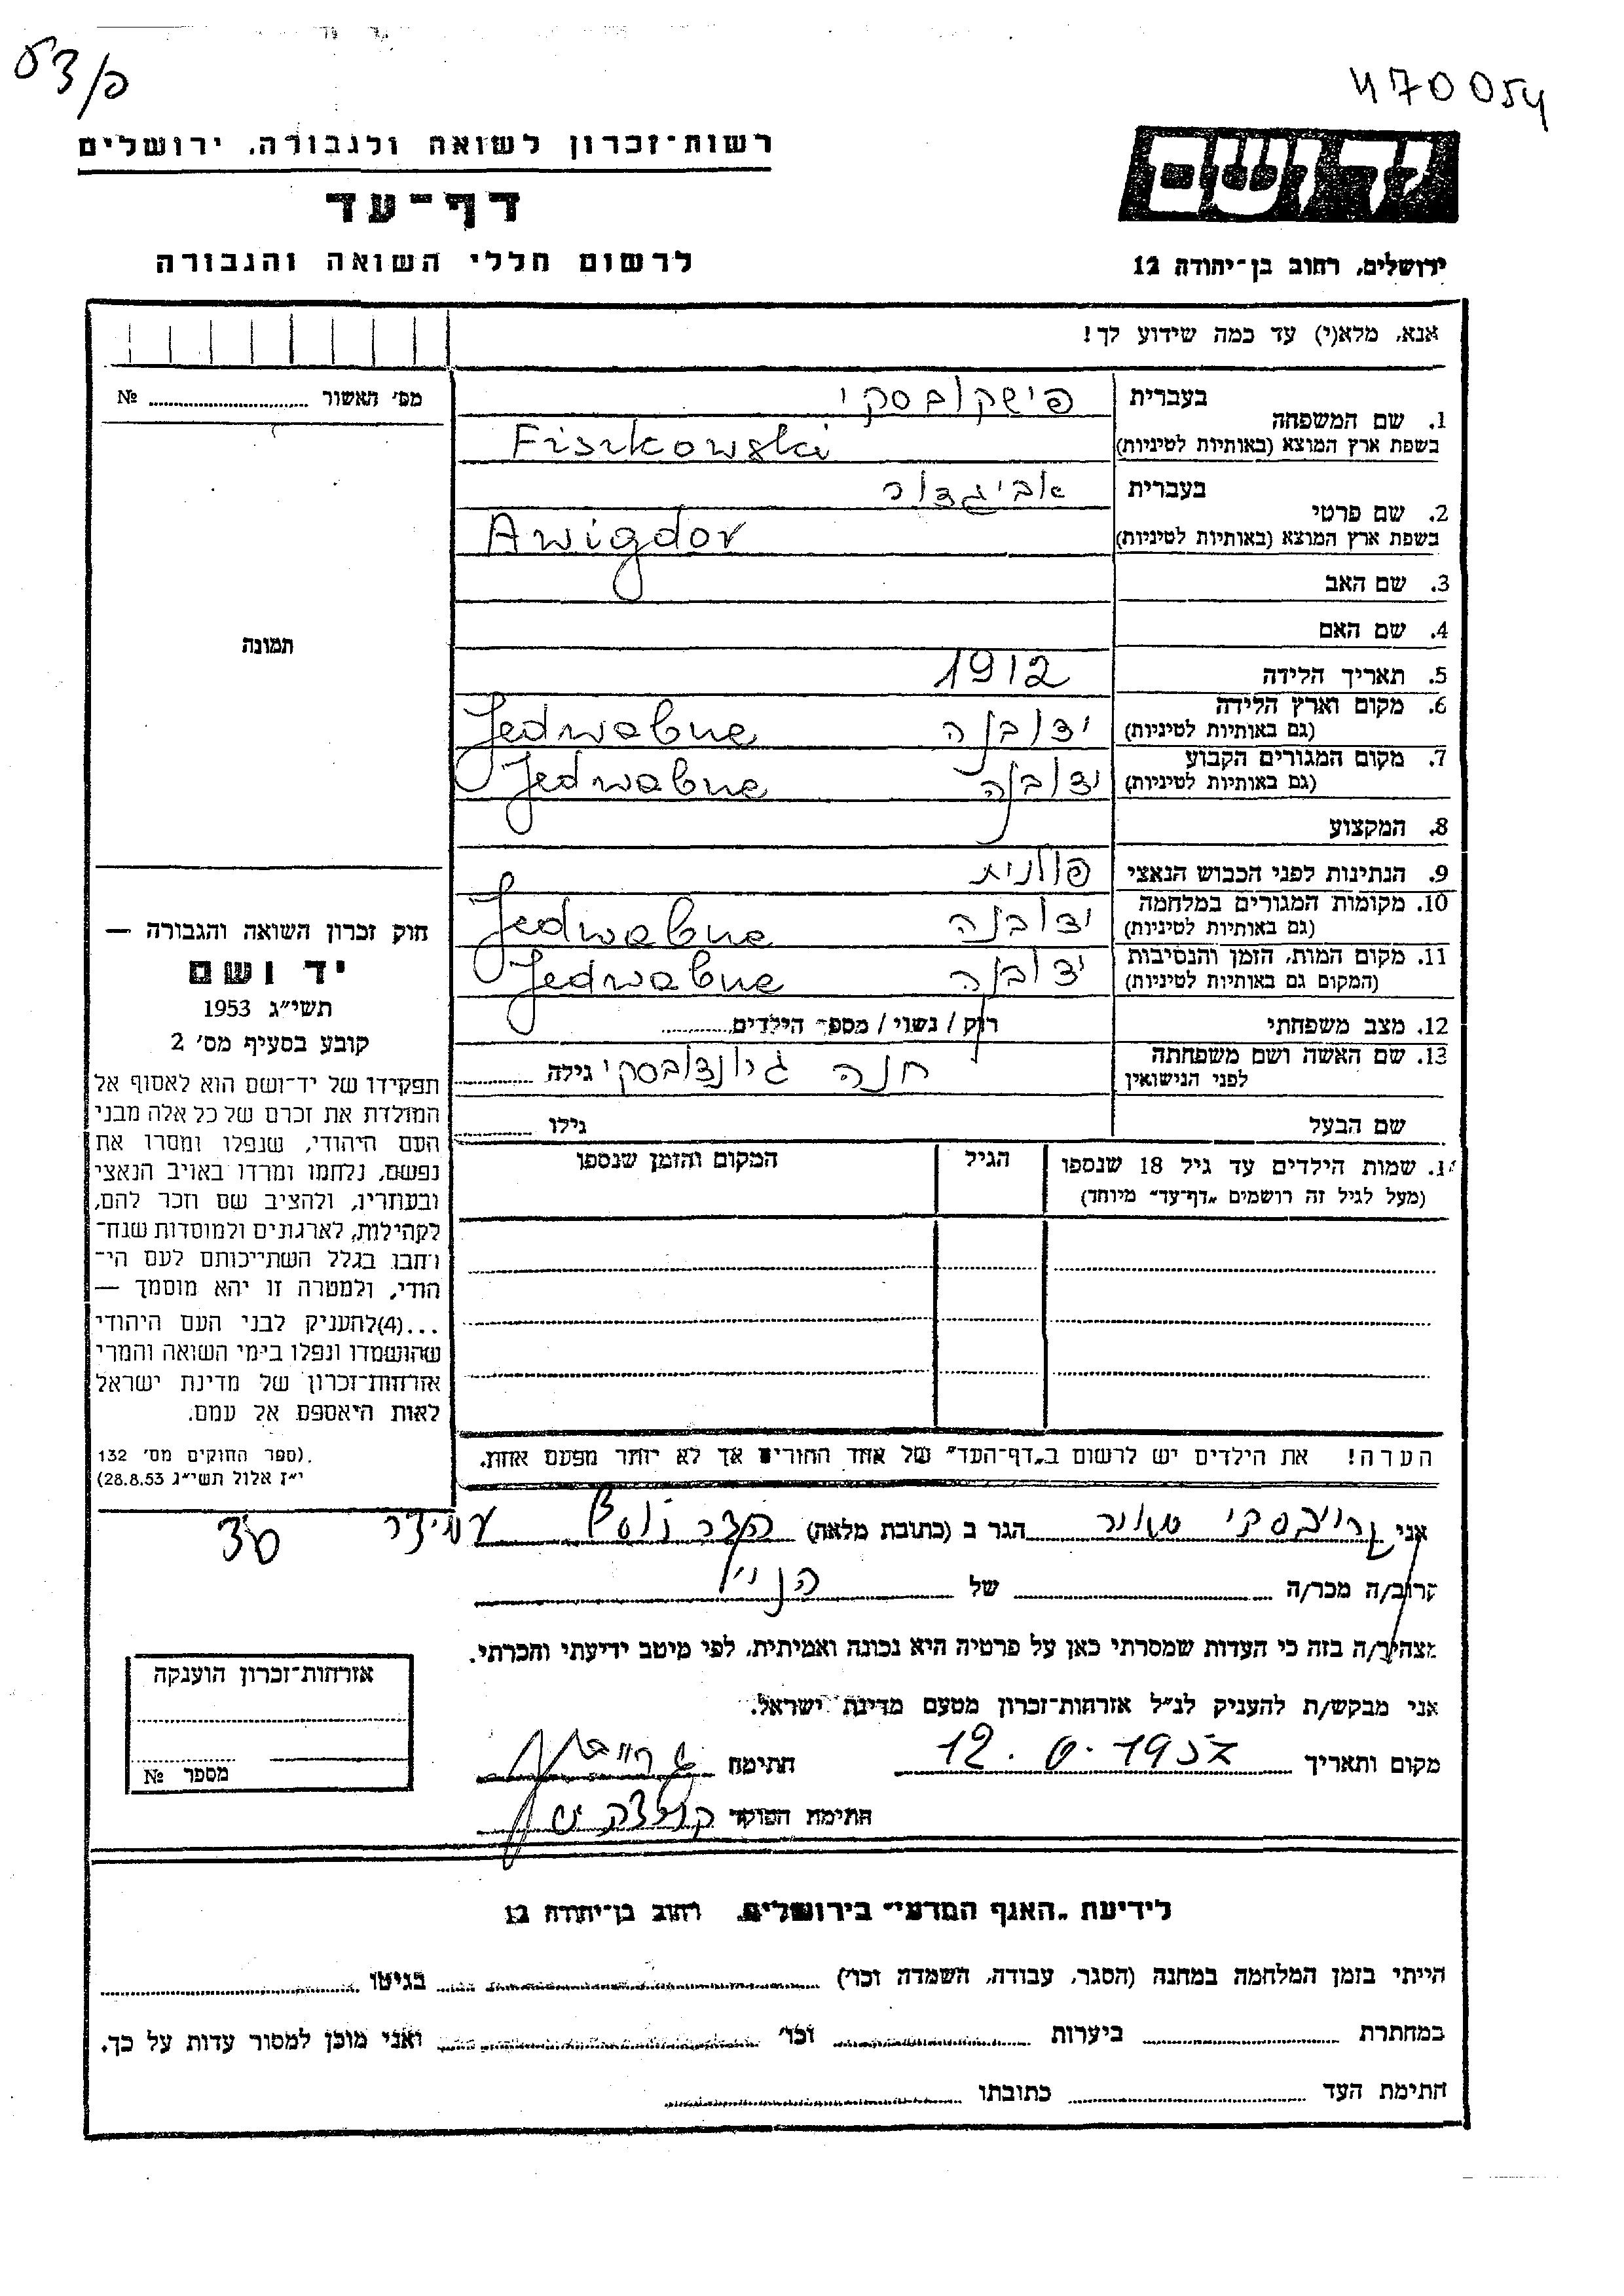 470054
רשות־זכרון לשואה ולגבורה, ירושלים
דף־עד
לרשום חללי השואה והגבורה
ירושלים, רחוב בן־יהודה 12
אנא, מלא(י) עד כמה שידוע לך!
מס׳ האשור № ........
1. שם המשפחה
בעברית פישקובסקי
בשפת ארץ המוצא (באותיות לטיניות) Fiszkowski
2. שם פרטי
בעברית אביגדור
בשפת ארץ המוצא (באותיות לטיניות) Awigdor
3. שם האב
4. שם האם
תמונה
5. תאריך הלידה 1912
6. מקום וארץ הלידה
(גם באותיות לטיניות) ידובנה Jedwabne
7. מקום המגורים הקבוע
(גם באותיות לטיניות) ידובנה Jedwabne
8. המקצוע
9. הנתינות לפני הכבוש הנאצי פולנית
10. מקומות המגורים במלחמה
(גם באותיות לטיניות) ידובנה Jedwabne
11. מקום המות, הזמן והנסיבות
(המקום גם באותיות לטיניות) ידובנה Jedwabne
12. מצב משפחתי רוק / נשוי / מספר הילדים ........
13. שם האשה ושם משפחתה
לפני הנישואין חנה גרונדובסקי גילה ........
שם הבעל גילו ........
14. שמות הילדים עד גיל 18 שנספו הגיל המקום והזמן שנספו
(מעל לגיל זה רושמים „דף־עד״ מיוחד)
הערה! את הילדים יש לרשום ב„דף־העד״ של אחד ההורים אך לא יותר מפעם אחת.
חוק זכרון השואה והגבורה —
יד ושם
תשי״ג 1953
קובע בסעיף מס׳ 2
תפקידו של יד־ושם הוא לאסוף אל
המולדת את זכרם של כל אלה מבני
העם היהודי, שנפלו ומסרו את
נפשם, נלחמו ומרדו באויב הנאצי
ובעוזריו, ולהציב שם וזכר להם,
לקהילות, לארגונים ולמוסדות שנח־
רבו בגלל השתייכותם לעם הי־
הודי, ולמטרה זו יהא מוסמך —
...(4)להעניק לבני העם היהודי
שהושמדו ונפלו בימי השואה והמרי
אזרחות־זכרון של מדינת ישראל
לאות היאספם אל עמם.
(ספר החוקים מס׳ 132.
י״ז אלול תשי״ג 28.8.53)
אני הגר ב (כתובת מלאה) עמידר
קרוב/ה מכר/ה של הנ״ל
מצהיר/ה בזה כי העדות שמסרתי כאן על פרטיה היא נכונה ואמיתית, לפי מיטב ידיעתי והכרתי.
אני מבקש/ת להעניק לנ״ל אזרחות־זכרון מטעם מדינת ישראל.
מקום ותאריך חתימה
חתימת הפוקד
אזרחות־זכרון הוענקה
מספר №
לידיעת „האגף המדעי״ בירושלים, רחוב בן־יהודה 12
הייתי בזמן המלחמה במחנה (הסגר, עבודה, השמדה וכו׳) ........ בגיטו ........
במחתרת ........ ביערות ........ וכו׳ ........ ואני מוכן למסור עדות על כך.
חתימת העד ........ כתובתו ........